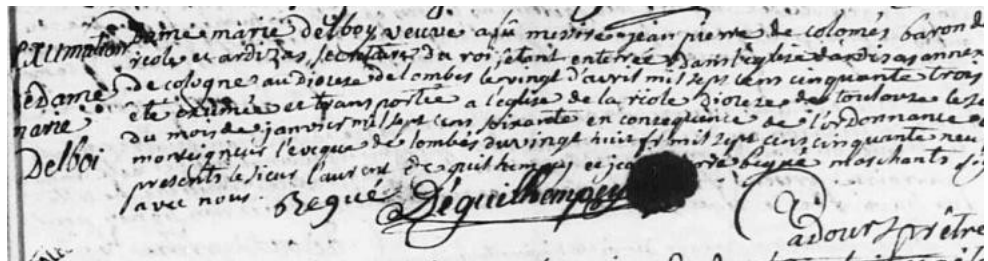 Exumation
de dame
marie
Delboi
Dame marie delboy veuve a fû messire jean pierre de colomés baron de
réole et ardizas secretaire du roi, etant enterrée dans l'eglise d'ardisas annexe
de cologne au dioceze de lombes le vingt d'avril mil sept cens cinquante trois
été exumée et transportée a l'eglise de la réole dioceze de toulouze le
du mois de janvier mil sept cens soixante en consequence de l'ordonnance de
monseigneur l'eveque de lombés du vingt huit mil sept cens cinquante neu
presents le sieur laurent deguilhemguy et begué marchants
avec nous. Begué Déguilhemguy
adour prêtre